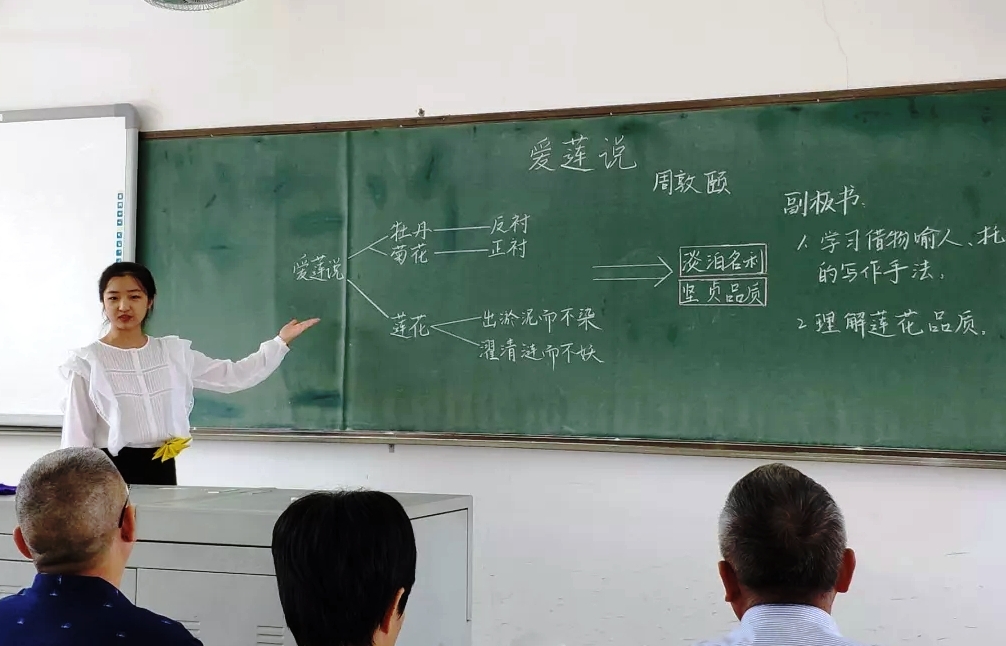 爱莲说
周敦颐
爱莲说
牡丹——反衬
菊花——正衬
莲花
出淤泥而不染
濯清涟而不妖
淡泊名利
坚贞品质
副板书:
1. 学习借物喻人、托
的写作手法.
2 理解莲花品质.